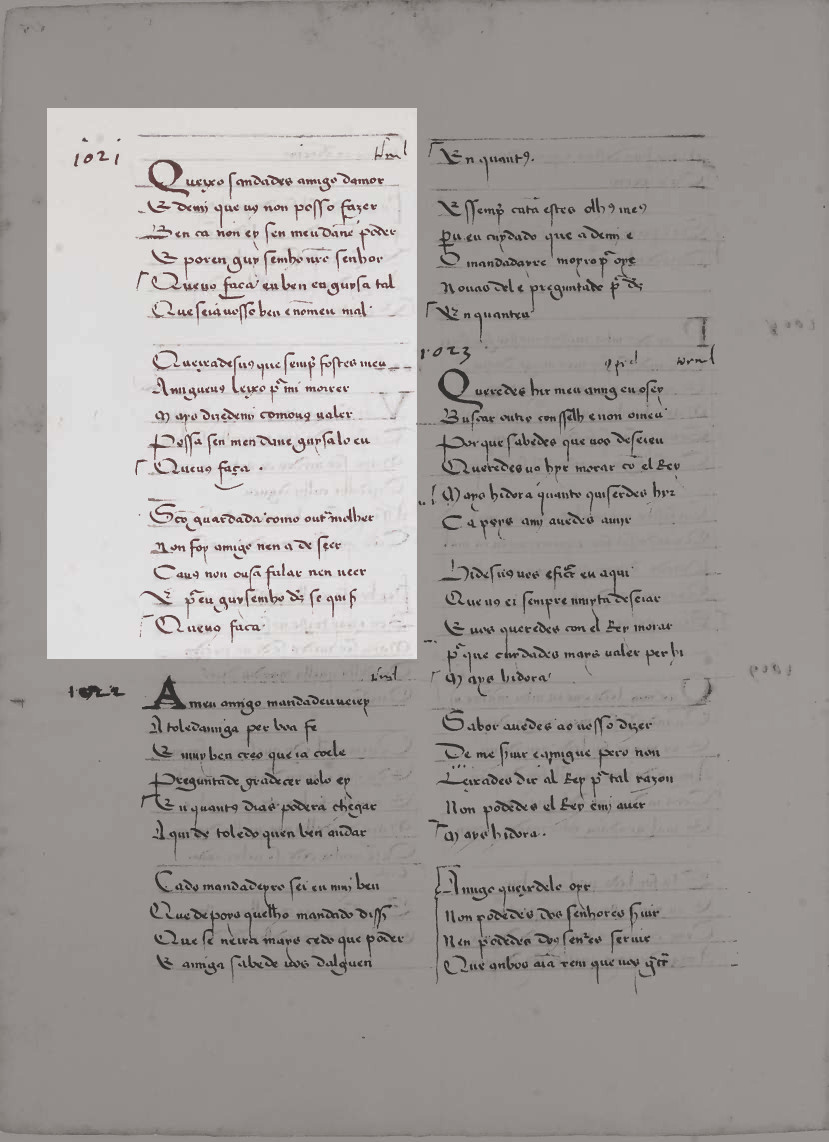 1021
Queixo sandades amigo damor
E demj que uꝯ non posso fazer
Ben ca non ey sen meu dane poder
E poren guysemho nr̃e senhor
Queuo faca eu ben en guysa tal
Que seia uosso ben e nomeu mal
Queixadesuꝯ que semp̃ fostes meu
Amigueuꝯ leixo p̃ mi morrer
Mays dizedemj comouꝯ ualer
Possa sen meu dane guysalo eu
Queuꝯ faça
guardada como out̃ molher
Non foy amigo nen a de seer
Cauꝯ non ousa falar nen ueer
E p̃ eu guysemho d's se quis
Queuo faca
1022
A meu amigo mandadeuueiey
A toledamiga per boa fe
E muy ben creo que ia coele
Preguntade gradecer uolo ey
En quantꝯ dias podera chegar
Aqui de toledo quen ben andar
Ca do mandadeyro sei eu muj ben
Que depoys quelho mandado
Que se neira mays cedo que poder
E amiga sabede uos dalguen
En quantꝯ.
E ssemp̃ catã estes olhꝯ meꝯ
Per eu cuydado que a demj e
O mandadeyre moyro p̃
Nouas del e preguntade p̃ d's
En quanteu
1023
Queredes hir meu amig eu o sey
Buscar outro conselh e non o meu
Porque sabedes que uos deseieu
Queredesuo hyr morar cõ el Rey
Mays hidora quanto quiserdes hir
Ca poys a mj auedes a uijr
Hidesuꝯ uos e ficr eu aqui
Que uꝯ ei sempre muyta deseiar
E uos queredes con el Rey morar
p̃ que cuydades mays ualer per hi
Mays hidora
Sabor auedes ao uosso dizer
De me seruir amigue pero non
Leixades dir al Rey p̃ tal razon
Non podedes el Rey e mj auer
Mays hidora.
Amigo queredelo oyr
Non podedes dos senhores seruir
Nen podedes doꝯ señres seruir
Que anbos aiã rem que uos